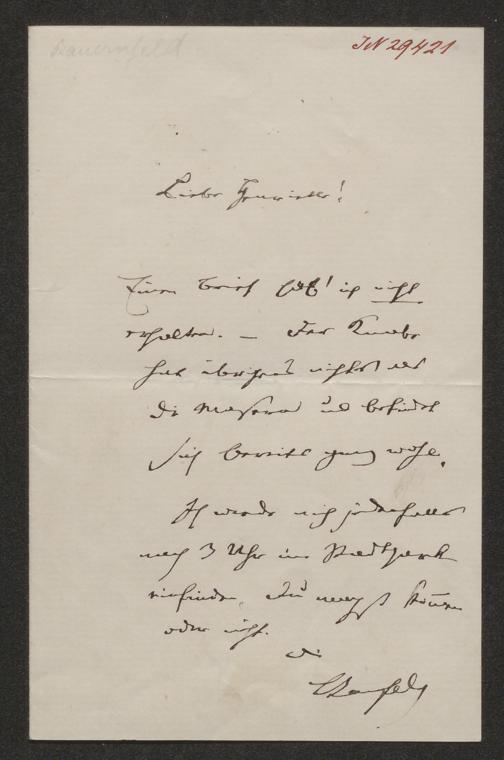 Bauernfeld
IN 29421
Lieber
Einen Brief hab' ich nicht
erhalten. – Der Knabe
hat übrigens nichts als
die Masern und befindet
sich bereits ganz wohl.
Ich werde mich jedenfalls
nach 3 Uhr im Stadtpark
einfinden, Du magst kommen
oder nicht.
Dein